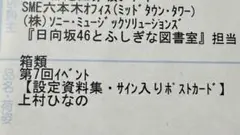 SME六本木オフィス(ミッドタウン・タワー)
(株)ソニー・ミュージックソリューションズ
『日向坂46とふしぎな図書室』担当
箱類
第7回イベント
【設定資料集・サイン入りポストカード】
上村ひなの